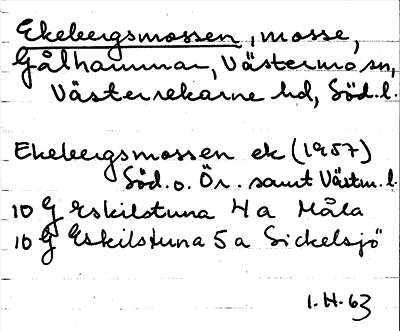 Ekebergsmossen, mosse,
Gålhammar, Västermo sn,
Västerrekarne hd, Söd. l.
Ekebergsmossen ek (1957)
Söd. o. Ör. samt Västm. l.
10 G Eskilstuna 4a Måla
10 G Eskilstuna 5a Sickelsjö
1. H. 63